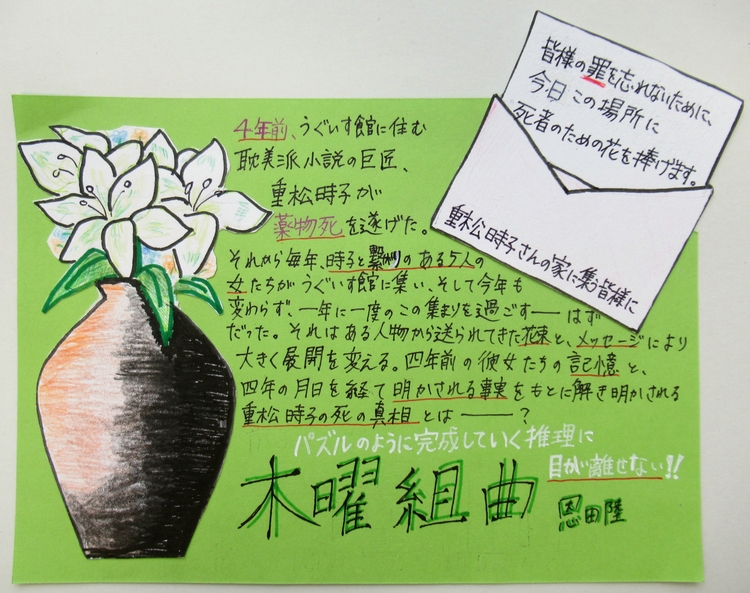 皆様の罪を忘れないために、
今日この場所に
死者のための花を捧げます。
重松時子さんの家に集う皆様に
4年前、うぐいす館に住む
耽美派小説の巨匠、
重松時子が
薬物死を遂げた。
それから毎年、時子と繋がりのある5人の
女たちがうぐいす館に集い、そして今年も
変わらず、一年に一度のこの集まりを過ごす――はず
だった。それはある人物から送られてきた花束と、メッセージにより
大きく展開を変える。四年前の彼女たちの記憶と、
四年の月日を経て明かされる事実をもとに解き明かされる
重松時子の死の真相とは――?
パズルのように完成していく推理に
目が離せない!!
木曜組曲 恩田陸